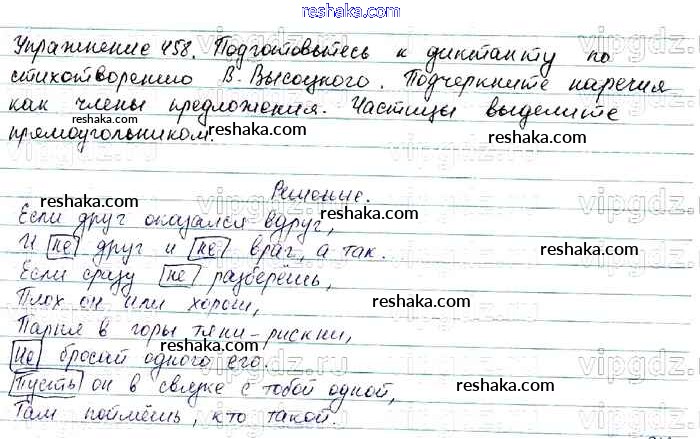 reshaka.com
Упражнение 458. Подготовьтесь к диктанту по
стихотворению В. Высоцкого. Подчеркните наречия
как члены предложения. Частицы выделите
прямоугольником.
reshaka.com
reshaka.com
reshaka.com
Решение.
Если друг оказался вдруг,
И не друг и не враг, а так.
Если сразу не разберёшь,
Плох он или хорош,
Парня в горы тяни-рискни,
Не бросай одного его.
Пусть он в связке с тобой одной,
Там поймёшь, кто такой.
reshaka.com
reshaka.com
reshaka.com
reshaka.com
reshaka.com
reshaka.com
vipgdz.ru